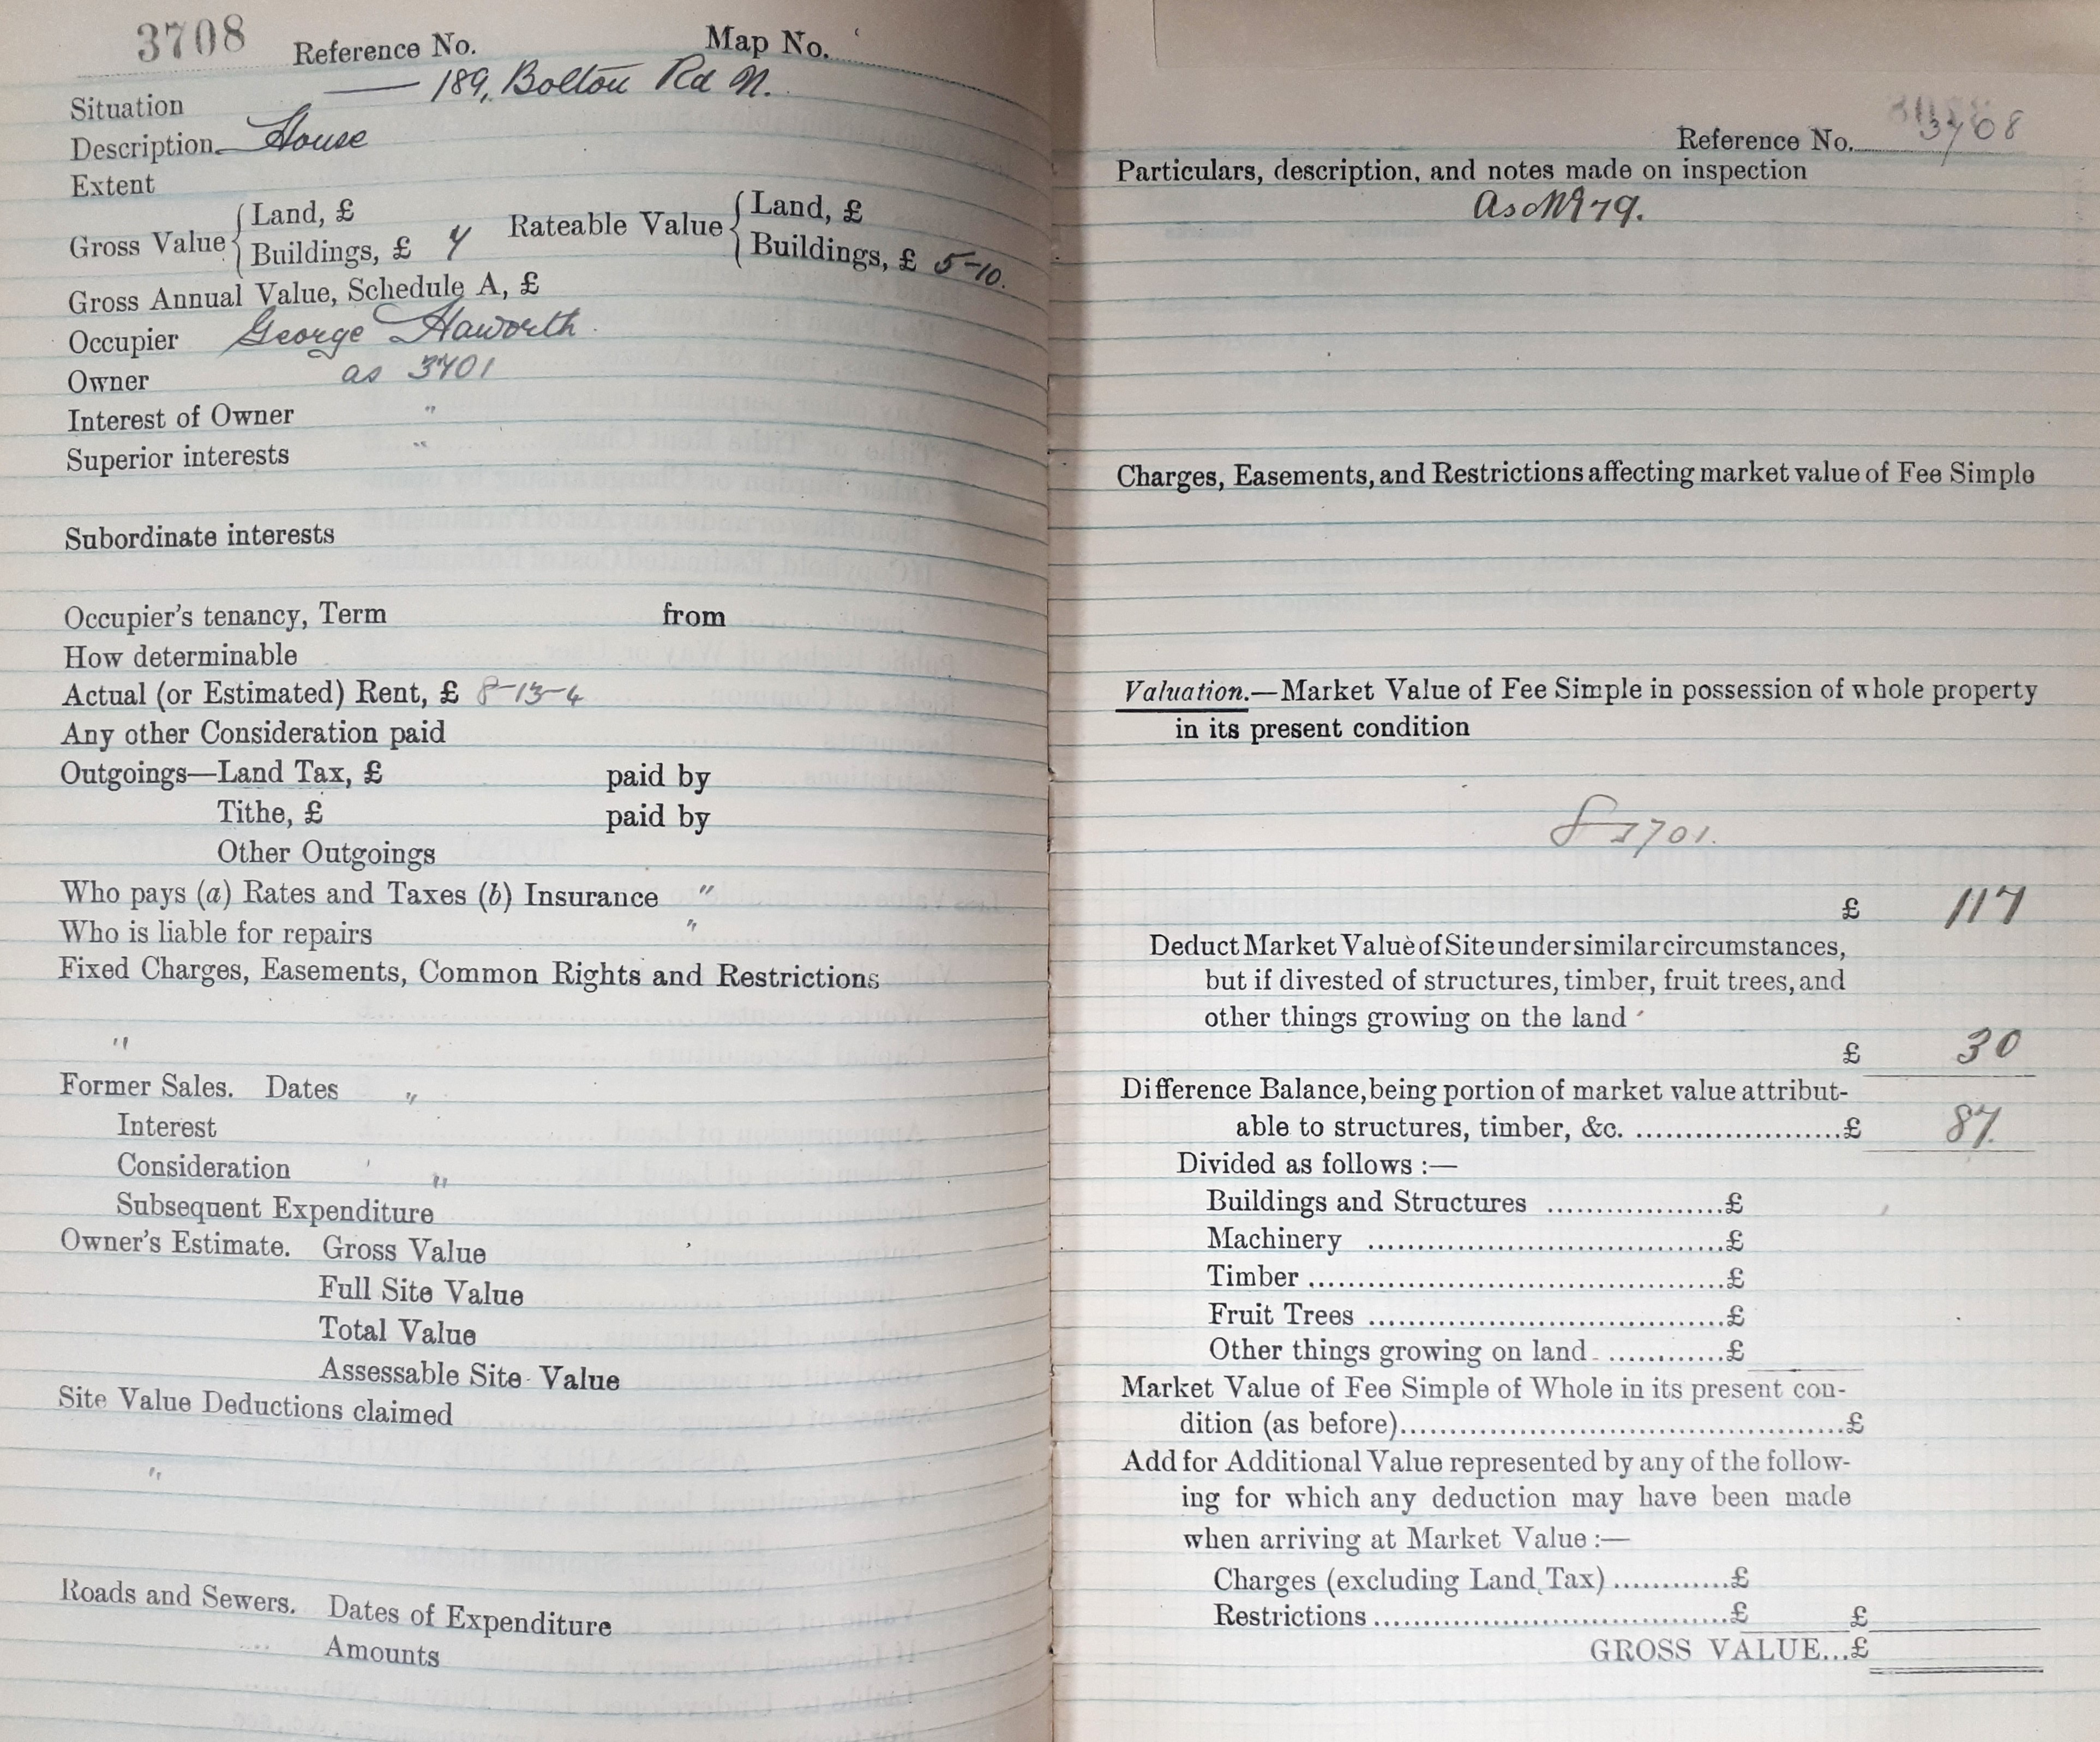 3708 Reference No. Map No.
Situation 189, Bolton Rd N.
Description House
Extent
Gross Value { Land, £ Rateable Value { Land, £
Buildings, £ 7 Buildings, £ 5-10.
Gross Annual Value, Schedule A, £
Occupier George Haworth
Owner as 3701
Interest of Owner "
Superior interests "
Subordinate interests
Occupier's tenancy, Term from
How determinable
Actual (or Estimated) Rent, £ 8-13-4
Any other Consideration paid
Outgoings—Land Tax, £ paid by
Tithe, £ paid by
Other Outgoings
Who pays (a) Rates and Taxes (b) Insurance "
Who is liable for repairs "
Fixed Charges, Easements, Common Rights and Restrictions
"
Former Sales. Dates "
Interest
Consideration "
Subsequent Expenditure
Owner's Estimate. Gross Value
Full Site Value
Total Value
Assessable Site Value
Site Value Deductions claimed
"
Roads and Sewers. Dates of Expenditure
Amounts
Reference No. 3708
Particulars, description, and notes made on inspection
As No 179.
Charges, Easements, and Restrictions affecting market value of Fee Simple
Valuation.—Market Value of Fee Simple in possession of whole property
in its present condition
3701.
£ 117
Deduct Market Value of Site under similar circumstances,
but if divested of structures, timber, fruit trees, and
other things growing on the land
£ 30
Difference Balance, being portion of market value attribut-
able to structures, timber, &c. ......................£ 87.
Divided as follows :—
Buildings and Structures ..................£
Machinery ......................................£
Timber ............................................£
Fruit Trees ......................................£
Other things growing on land ............£
Market Value of Fee Simple of Whole in its present con-
dition (as before)..............................................£
Add for Additional Value represented by any of the follow-
ing for which any deduction may have been made
when arriving at Market Value :—
Charges (excluding Land Tax) ............£
Restrictions ......................................£ £
GROSS VALUE...£